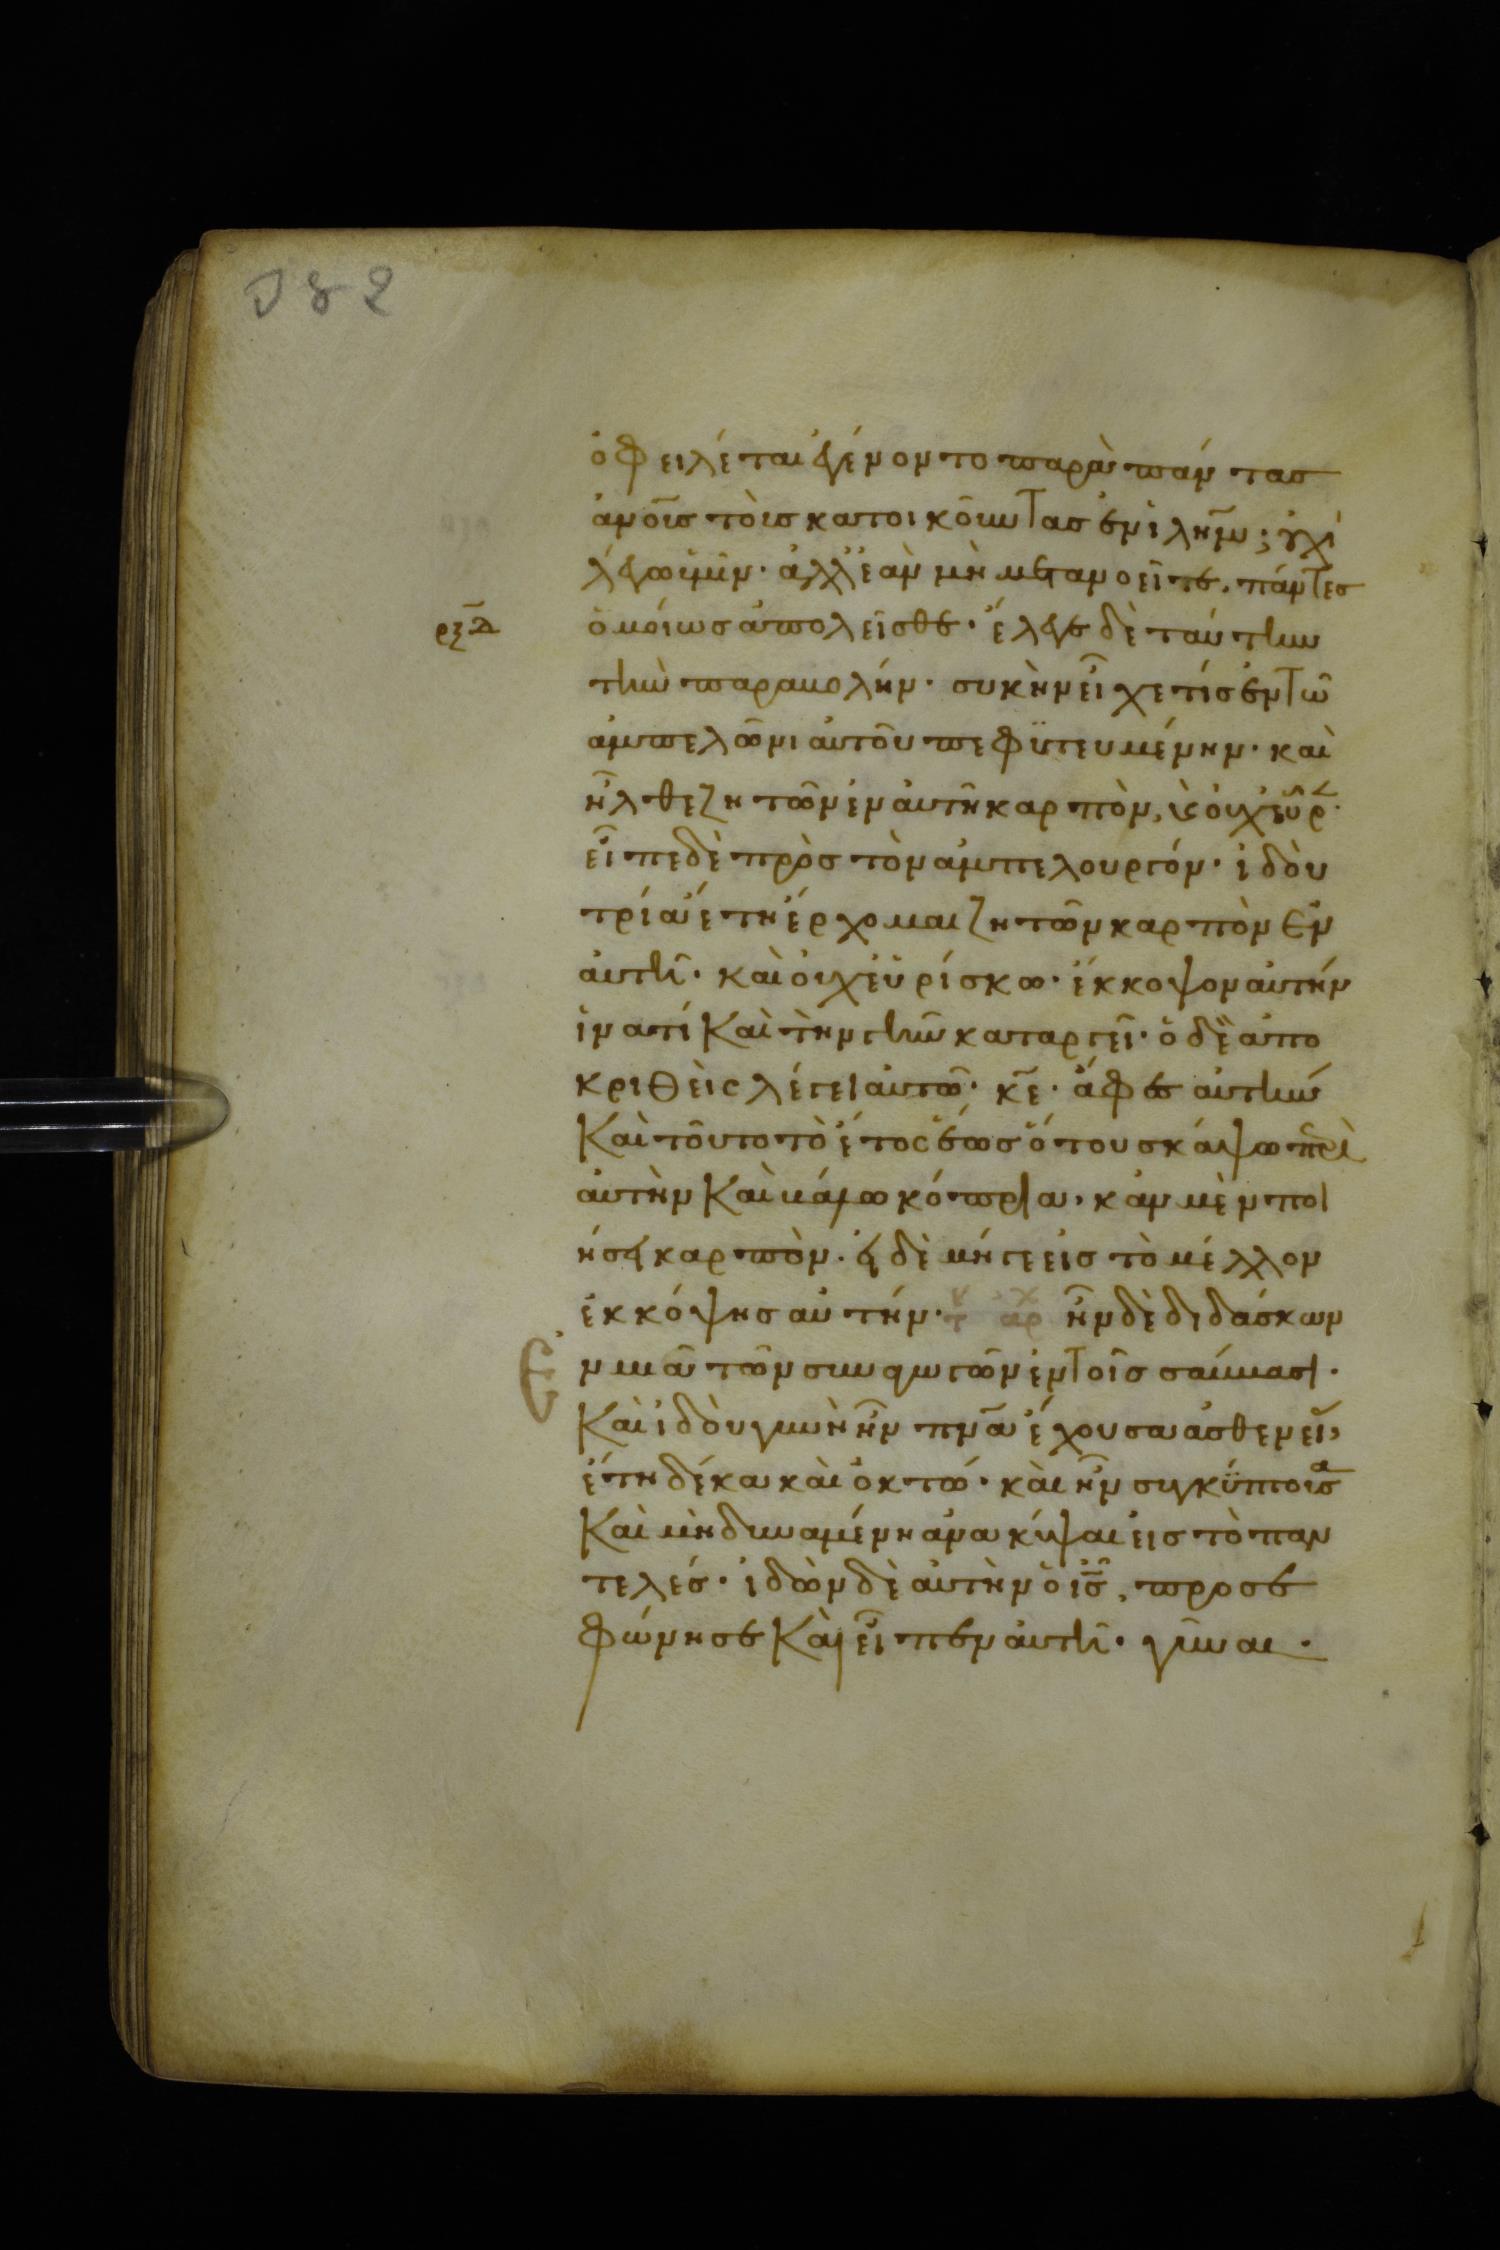 ὀφειλέται ἐγένοντο παρὰ πάντας
ἀνο̅υς τοὺς κατοικοῦντας ἐν ἰλη̅μ; οὐχὶ
λέγω ὑμῖν· ἀλλ' ἐὰν μὴ μετανοεῖτε, πάντες
ρξδ̅ ὁμοίως ἀπολεῖσθε· ἔλεγε δὲ ταύτην
τὴν παραβολήν· συκὴν εἶχε τίς ἐν τῶ
ἀμπελῶνι αὐτοῦ πεφϋτευμένην· καὶ
ἦλθε ζητῶν ἐν αὐτῆ καρπὸν, κ οὐχ εὗρ·
εἶπε δὲ πρὸς τὸν ἀμπελουργόν· ἰδοὺ
τρία ἔτη ἔρχομαι ζητῶν καρπὸν ἐν
αὐτῆ· καὶ οὐχ εὑρίσκω· ἔκκοψον αὐτήν
ἱνατί καὶ τὴν γῆν καταργεῖ· ὁ δὲ ἀπο
κριθεὶς λέγει αὐτῶ· κε̅· ἄφες αὐτὴν
καὶ τοῦτο τὸ ἔτος ἕως ὅτου σκάψω περὶ
αὐτὴν καὶ βάλω κόπρια, κἂν μὲν ποι
ήσει καρπὸν· εἰ δὲ μήγε εἰς τὸ μέλλον
ἐκκόψης αὐτήν· τ αρχ ἦν δὲ διδάσκων
ἐν μιᾶ τῶν συναγωγῶν ἐν τοῖς σάββασι·
καὶ ἰδοὺ γυνὴ ἦν πνα̅ ἔχουσα ἀσθενεί,
ἔτη δέκα καὶ ὀκτώ· καὶ ἦν συγκϋπτουσα
καὶ μὴ δυναμένη ἀνακύψαι εἰς τὸ παν
τελές· ἰδὼν δὲ αὐτὴν ὁ ις̅, προσε
φώνησε καὶ εἶπεν αὐτῆ· γύναι·